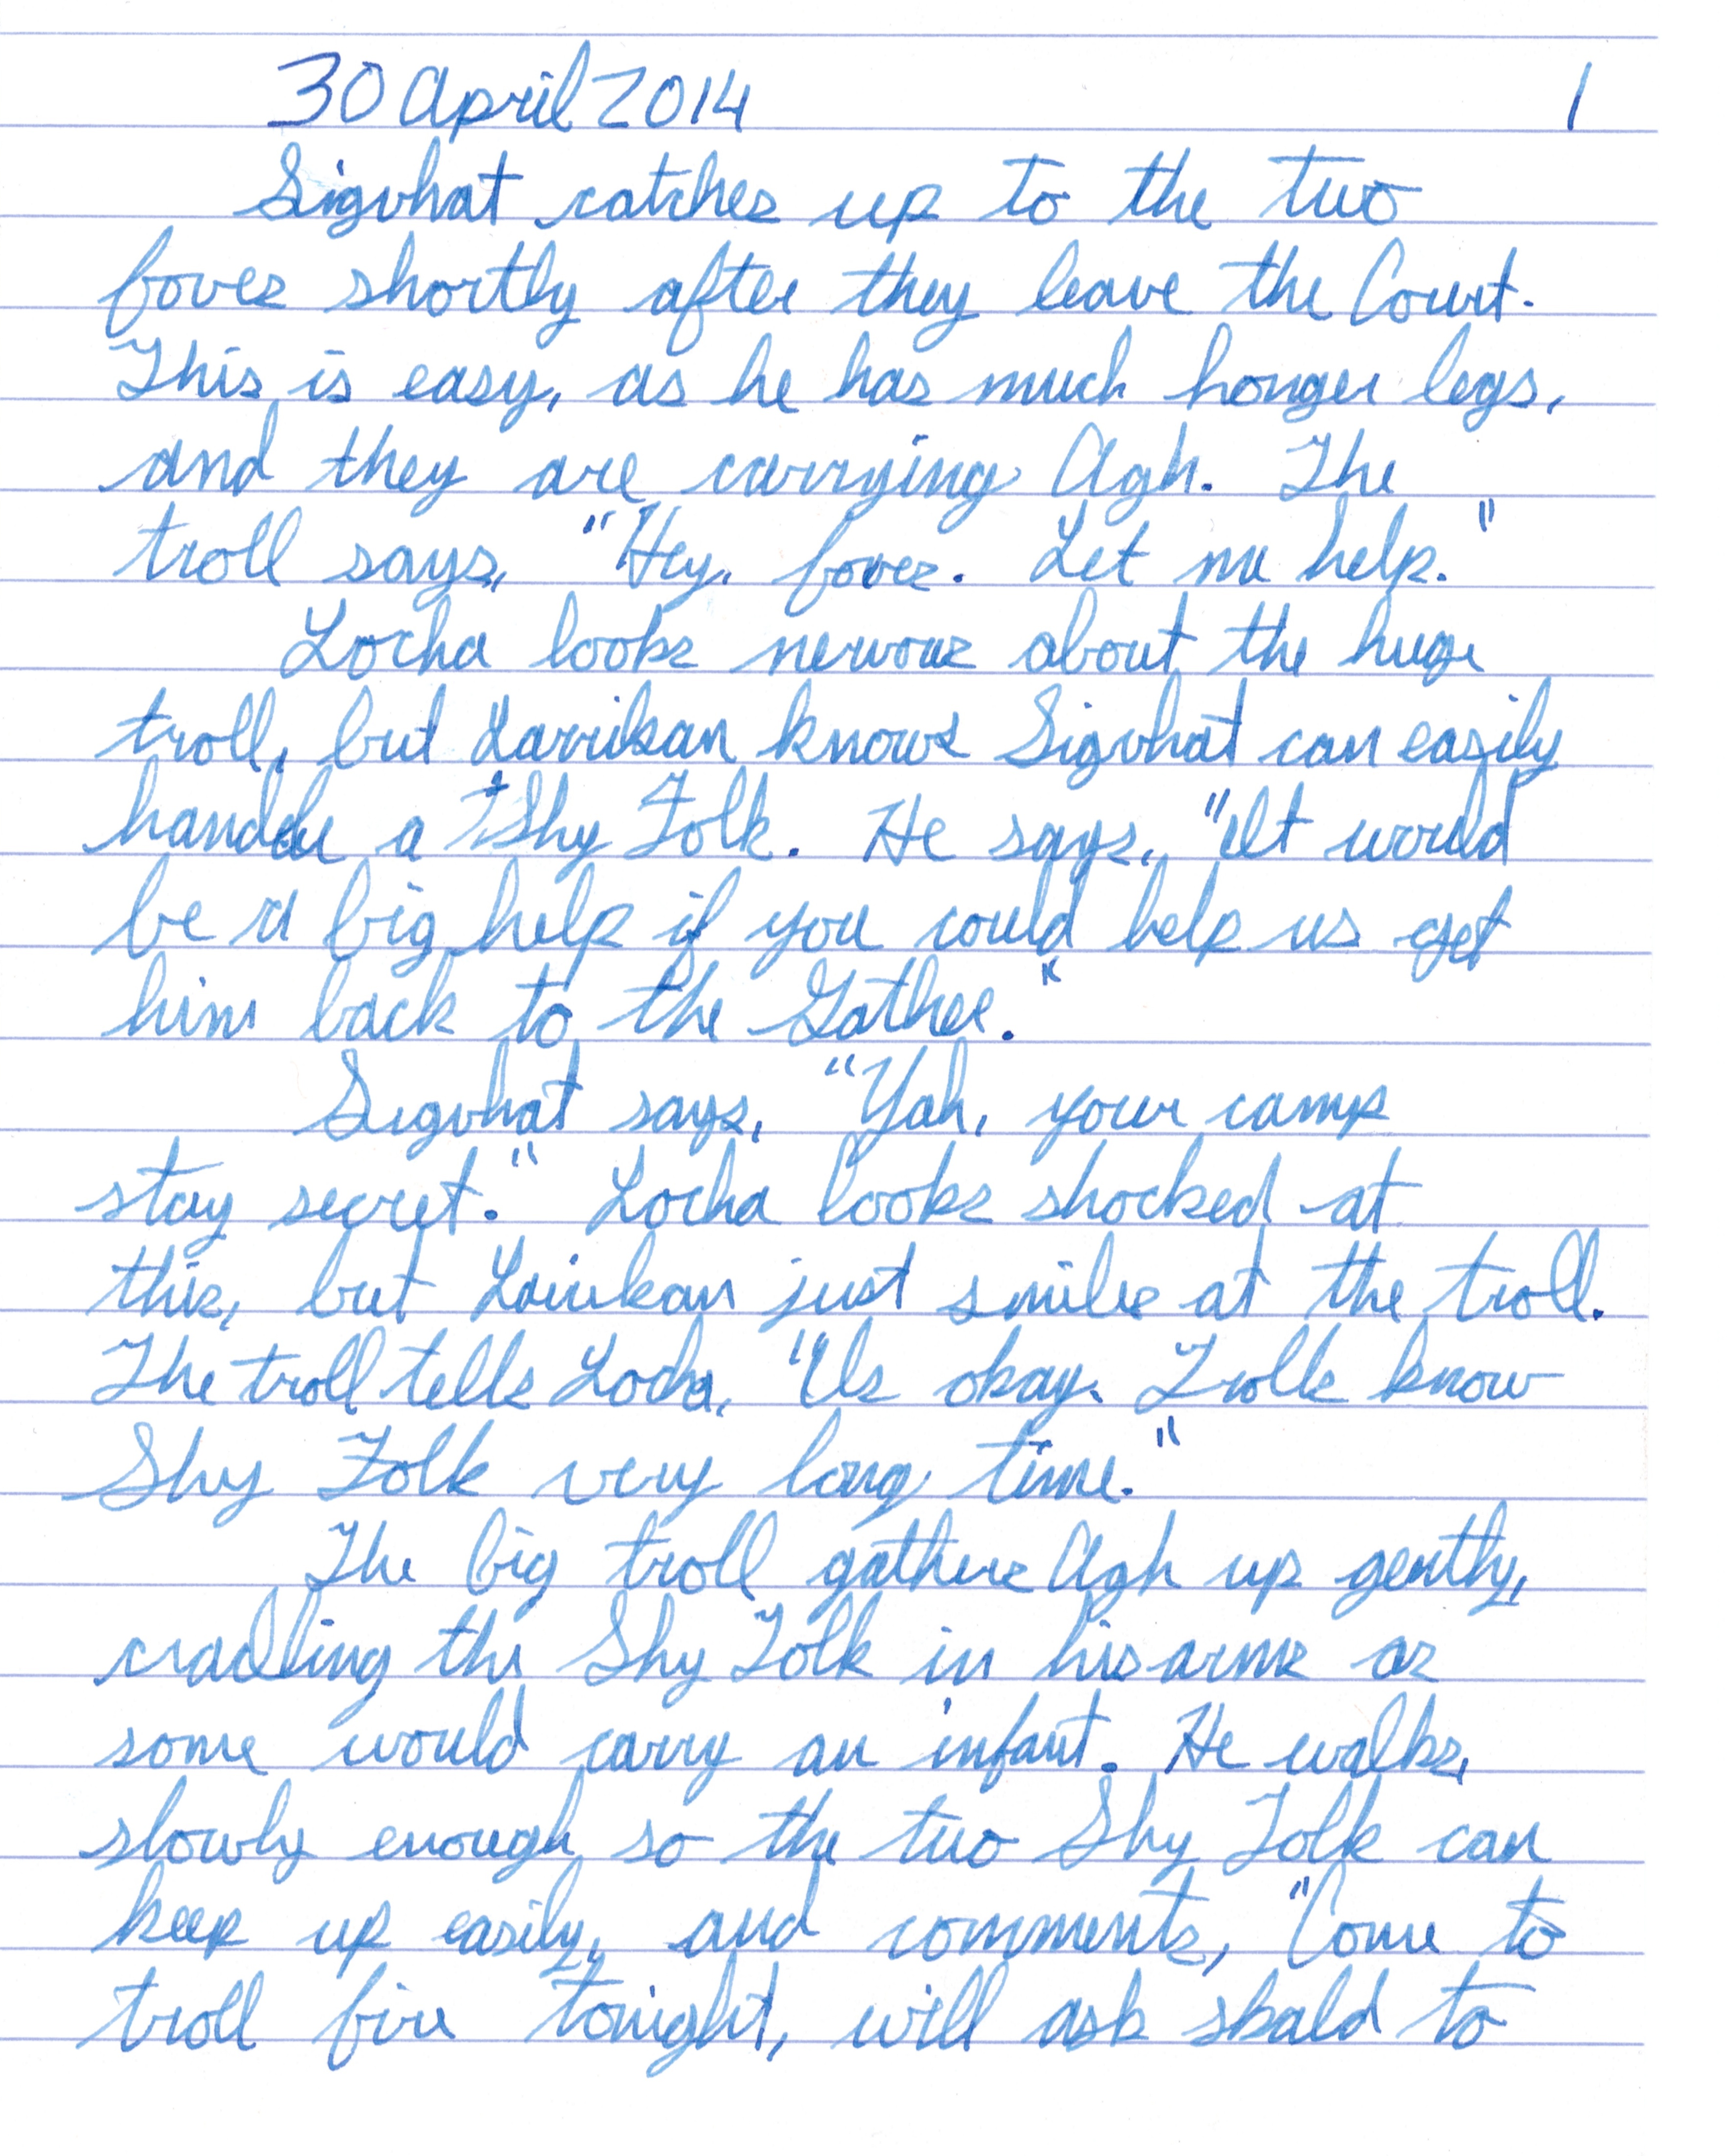 30 April 2014 1
Sigvhat catches up to the two
foves shortly after they leave the Court.
This is easy, as he has much honger legs,
and they are carrying Agh. The
troll says, "Hey, foves. Let me help."
Locha looks nervous about the huge
troll, but Larrikan knows Sigvhat can easily
handle a Shy Folk. He says, "It would
be a big help if you could help us get
him back to the Gather."
Sigvhat says, "Yah, your camp
stay secret." Locha looks shocked at
this, but Larrikan just smiles at the troll.
The troll tells Locha, "Us okay. Trolls know
Shy Folk very long time."
The big troll gathers Agh up gently,
cradling the Shy Folk in his arms as
some would carry an infant. He walks
slowly enough so the two Shy Folk can
keep up easily, and comments, "Come to
troll fire tonight, will ask skald to